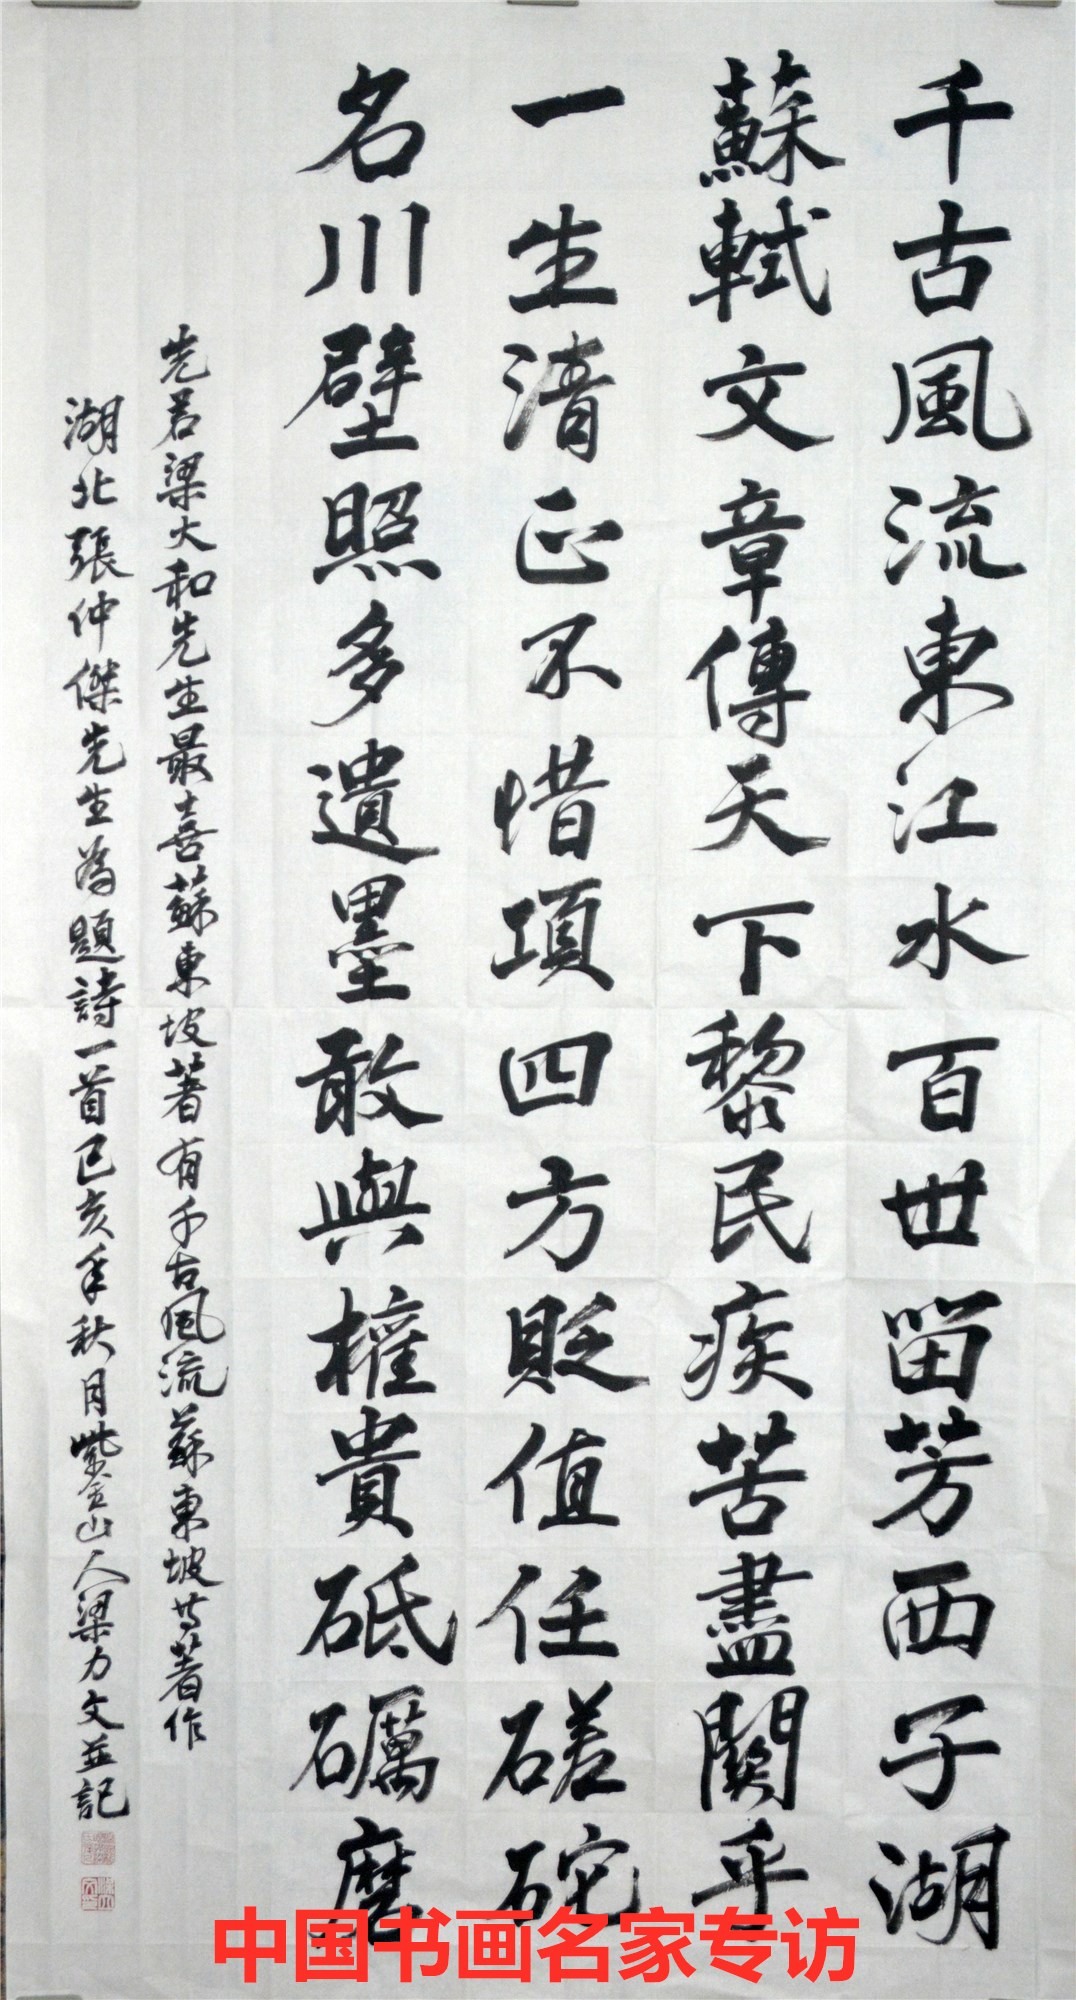 千古風流東江水百世留芳西子湖
蘇軾文章傳天下黎民疾苦盡關乎
一生清正不惜項四方貶值任磋砣
名川壁照多遺墨敢與權貴砥礪磨
先君梁大和先生最喜蘇東坡著有千古風流蘇東坡等著作
湖北張仲傑先生為題詩一首己亥年秋月紫金山人梁力文並記
中国书画名家专访